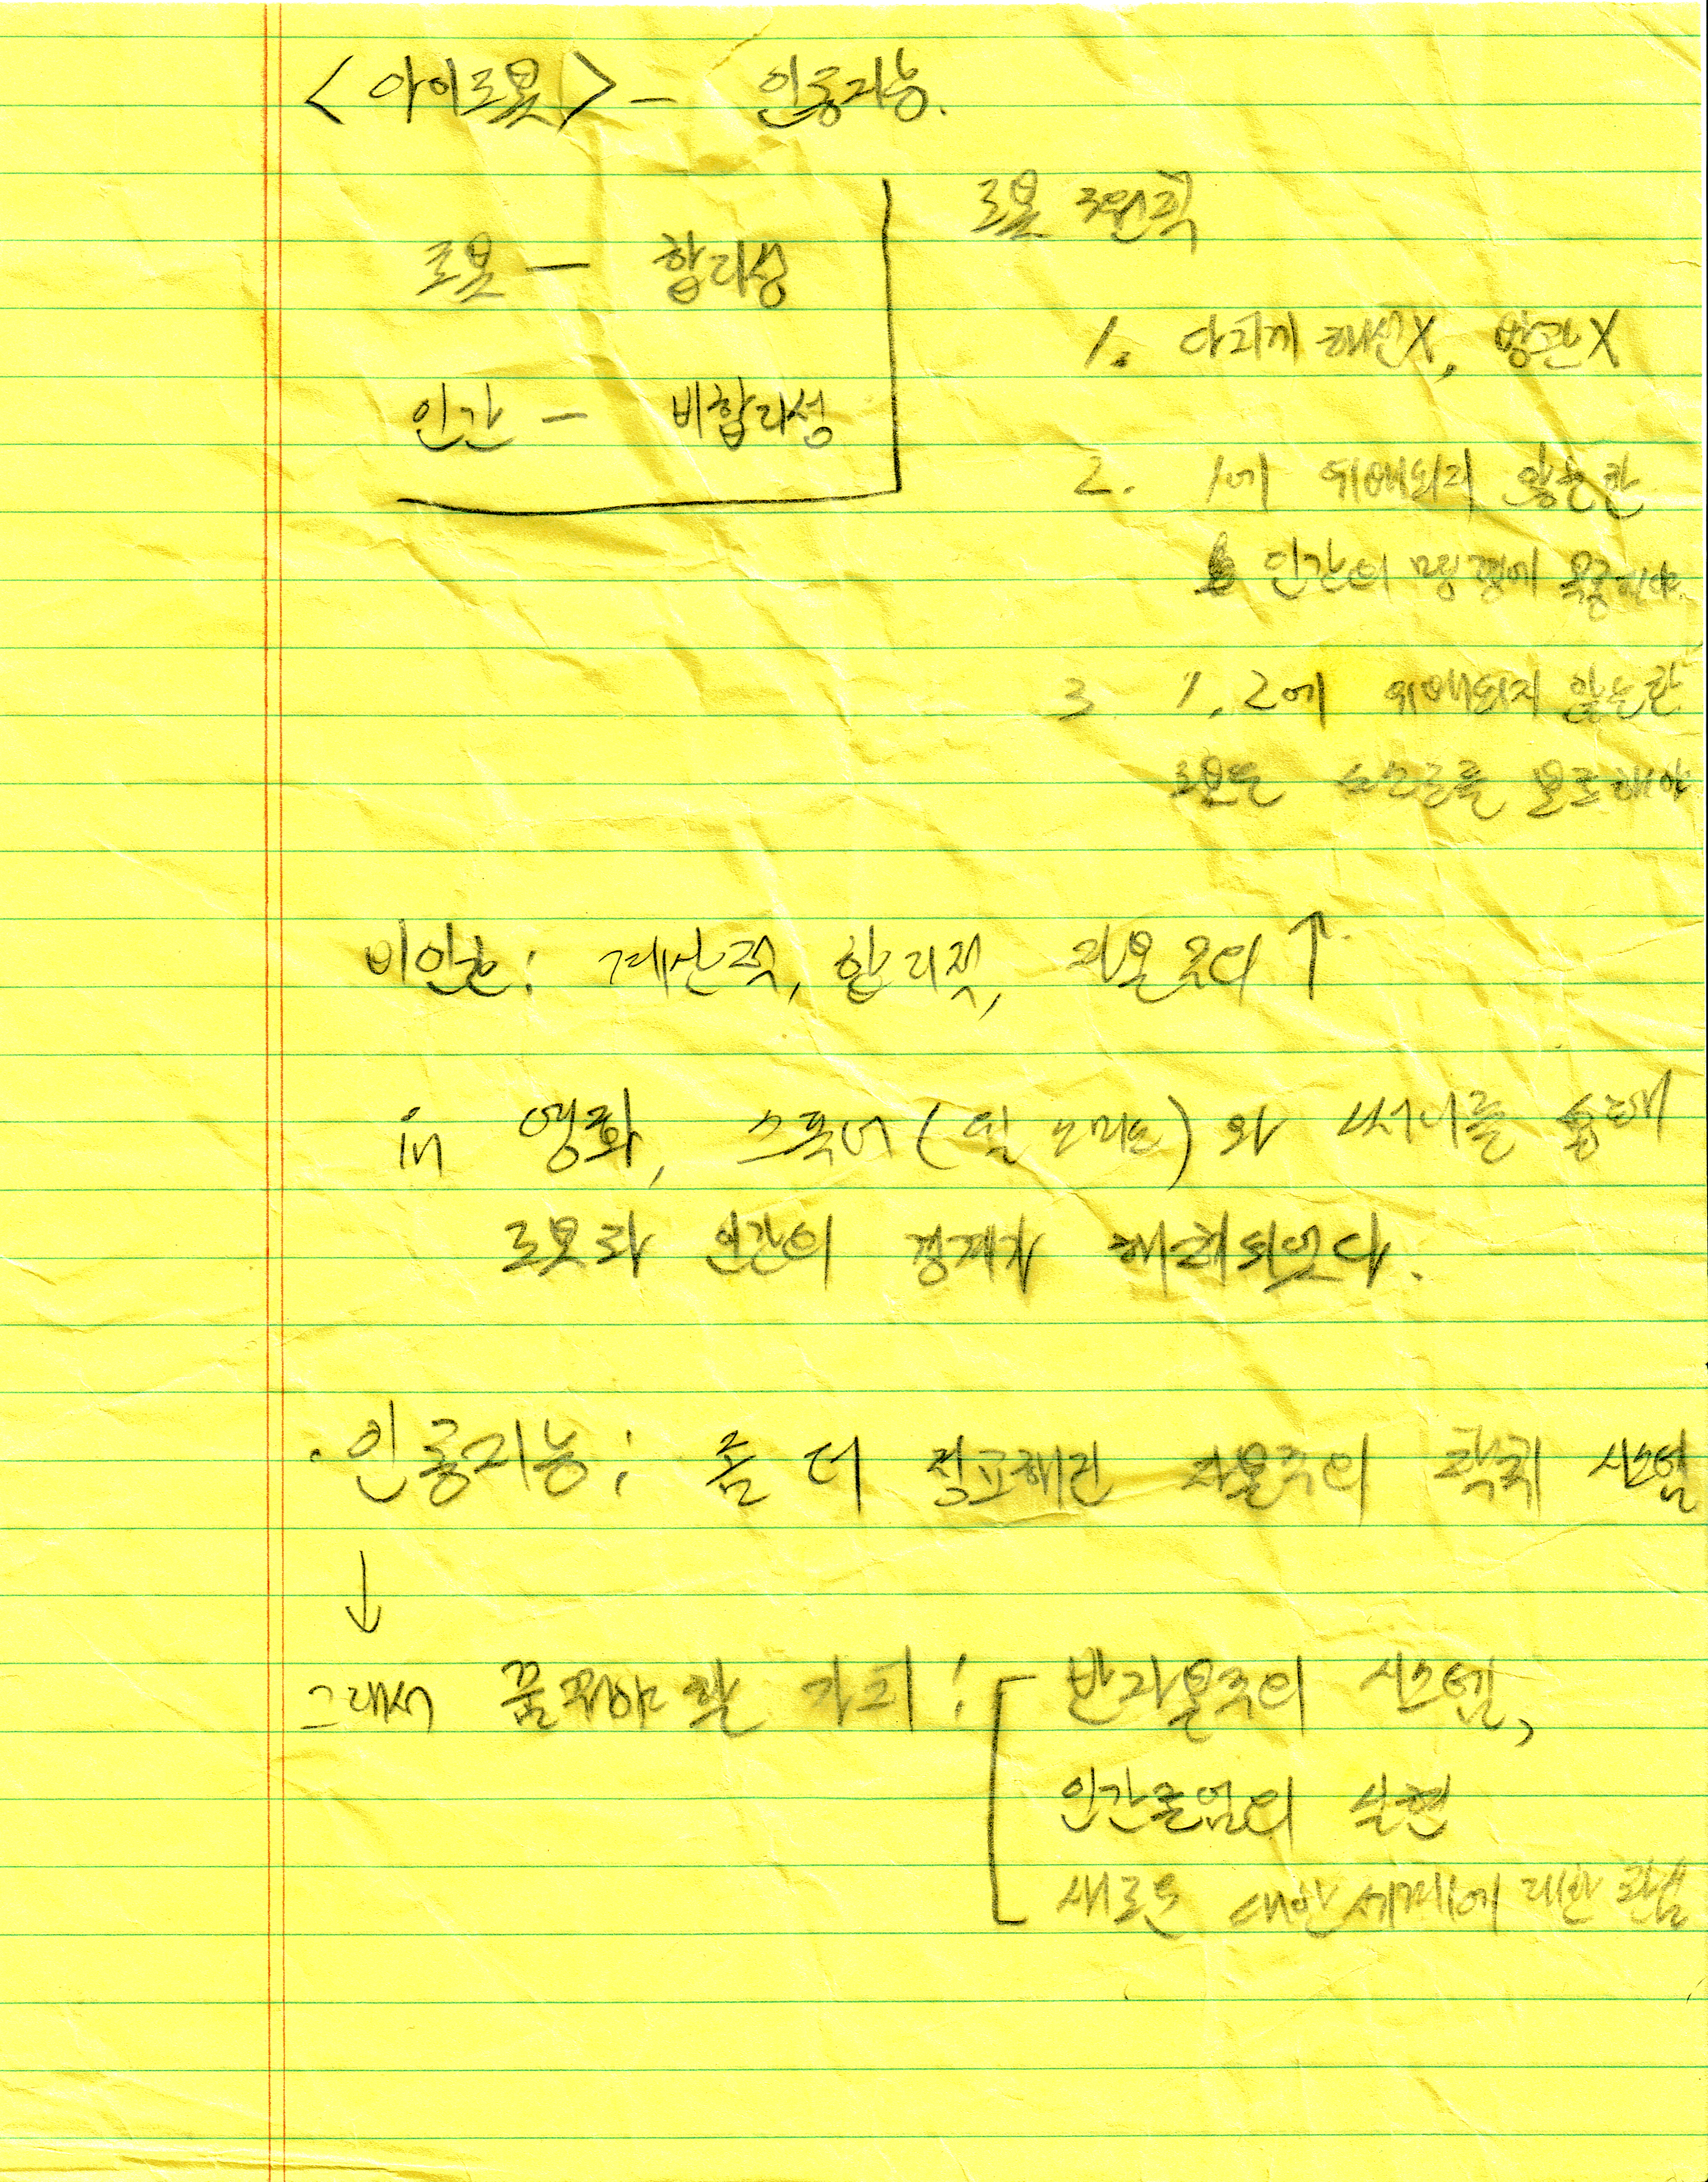 <아이로봇> - 인공지능.
로봇 - 합리성
인간 - 비합리성
로봇 3원칙
1. 다치게 해선X, 방관X
2. 1에 위배되지 않는한
인간의 명령에 복종해야.
3 1, 2에 위배되지 않는한
로봇은 스스로를 보호해야
비인간: 계산적, 합리적, 자본주의 ↑
in 영화, 스푸너(윌 스미스)와 써니를 통해
로봇과 인간의 경계가 해체되었다.
· 인공지능: 좀 더 정교해진 자본주의 착취 시스템
↓
그래서 꿈꿔야 할 가치: 반자본주의 시스템,
인간존엄의 실현
새로운 대안세계에 대한